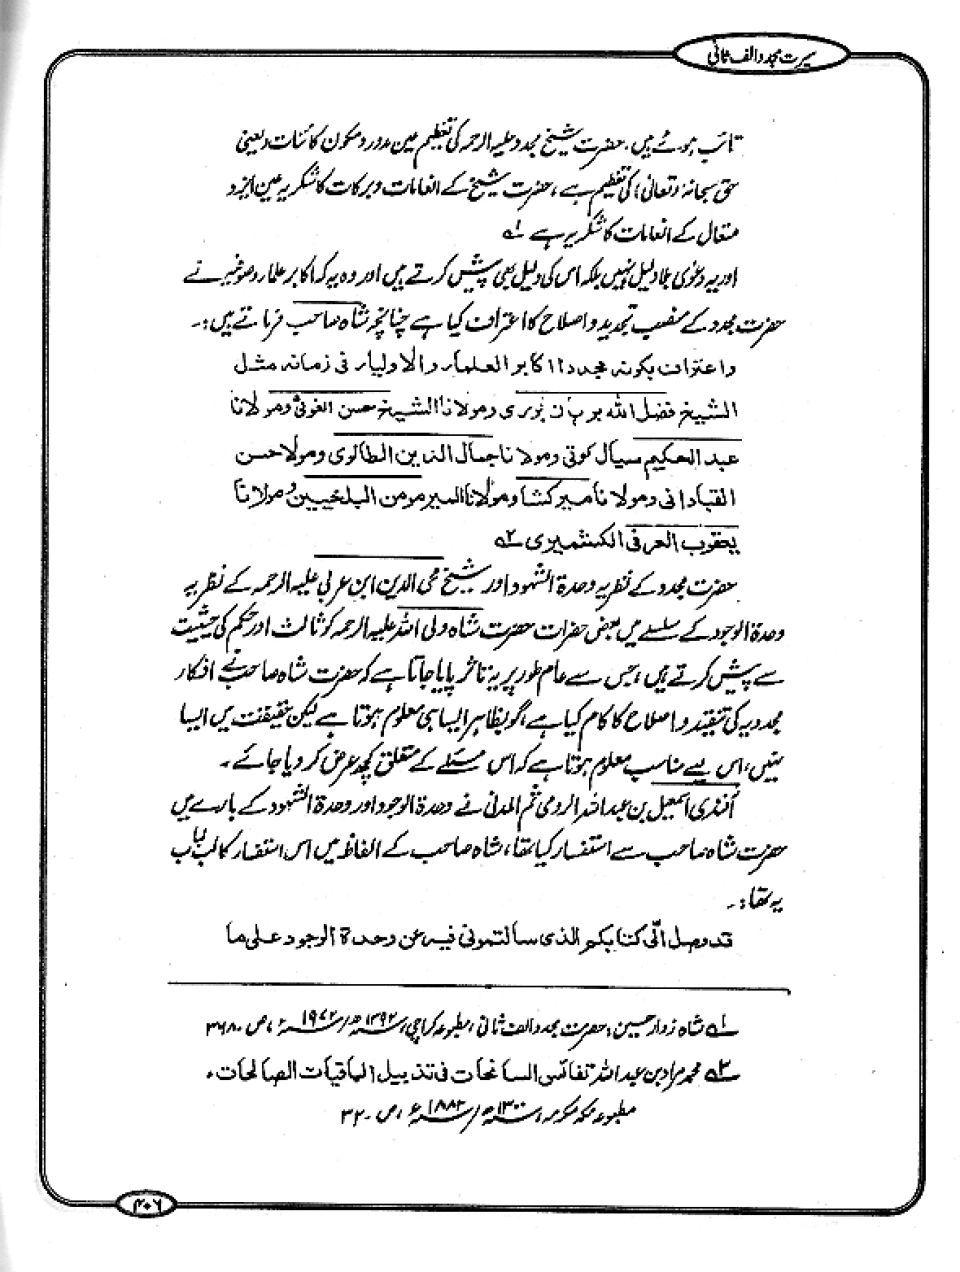 سیرت مجدد الف ثانی
تائب ہوئے ہیں، حضرت شیخ مجدد علیہ الرحمہ کی تعظیم عین مدور و مکون کائنات (یعنی
حق سبحانہ' وتعالیٰ) کی تعظیم ہے، حضرت شیخ کے انعامات و برکات کا شکریہ عین ایزد
متعال کے انعامات کا شکریہ ہے ۱؎
اور یہ دعوٰی بلا دلیل نہیں بلکہ اس کی دلیل بھی پیش کرتے ہیں اور وہ یہ کہ اکابر علماء و صوفیہ نے
حضرت مجدد کے منصبِ تجدید و اصلاح کا اعتراف کیا ہے چنانچہ شاہ صاحب فرماتے ہیں:۔
واعتراف بکونہ مجدد ۱۱ کابر العلماء والاولیاء فی زمانہ مثل
الشیخ فضل اللہ برہان بوری ومولانا الشیخ حسن الغوثی ومولانا
عبد الحکیم سیال کوتی ومولانا جمال الدین الطالوی ومولا حسن
القبادانی ومولانا میر کشا ومولانا المیر مومن البلخیین ومولانا
یعقوب العرفی الکشمیری ۲؎
حضرت مجدد کے نظریہ وحدۃ الشہود اور شیخ محی الدین ابن عربی علیہ الرحمہ کے نظریہ
وحدۃ الوجود کے سلسلے میں بعض حضرات حضرت شاہ ولی اللہ علیہ الرحمہ کو ثالث اور حکم کی حیثیت
سے پیش کرتے ہیں، جس سے عام طور پر یہ تاثر پایا جاتا ہے کہ حضرت شاہ صاحب نے افکار
مجددیہ کی تنقید و اصلاح کا کام کیا ہے، گو بظاہر ایسا ہی معلوم ہوتا ہے لیکن حقیقت میں ایسا
نہیں، اس لیے مناسب معلوم ہوتا ہے کہ اس مسئلے کے متعلق کچھ عرض کر دیا جائے۔
آفندی اسمٰعیل بن عبداللہ الرومی ثم المدنی نے وحدۃ الوجود اور وحدۃ الشہود کے بارے میں
حضرت شاہ صاحب سے استفسار کیا تھا، شاہ صاحب کے الفاظ میں اس استفسار کا لبِ لباب
یہ تھا:۔
قد وصل الیّ کتابکم الذی سالتمونی فیہ عن وحدة الوجود علی ما
۱؎ شاہ زوار حسین: حضرت مجدد الف ثانی، مطبوعہ کراچی، ۱۳۹۲ھ/۱۹۷۲ء، ص۔۳۶۸
۲؎ محمد مراد بن عبداللہ نفائس السانحات فی تذییل الباقیات الصالحات،
مطبوعہ مکہ مکرمہ، ۱۳۰۰ھ/۱۸۸۲ء، ص۔۳۲
۴۰۶